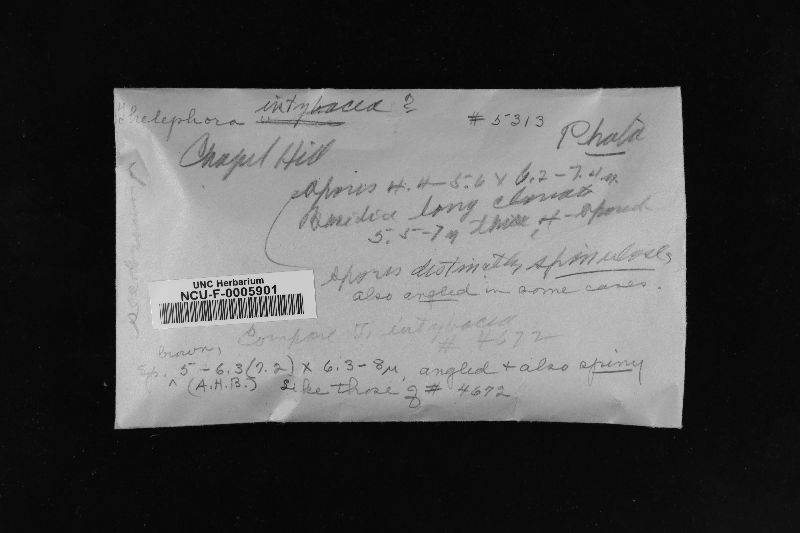 Thelephora intybacea ? # 5313
Photo
Chapel Hill
Spores 4.4-5.6 x 6.2-7.4 µ.
Basidia long clavate
5.5-7 µ thick, 4-spored
Spores distinctly spinulose,
also angled in some cases.
UNC Herbarium
NCU-F-0005901
Compare T. intybacea
# 4672
brown,
Sp. 5-6.3(7.2) x 6.3-8µ, angled + also spiny
^ (A.H.B.) Like those of # 4672